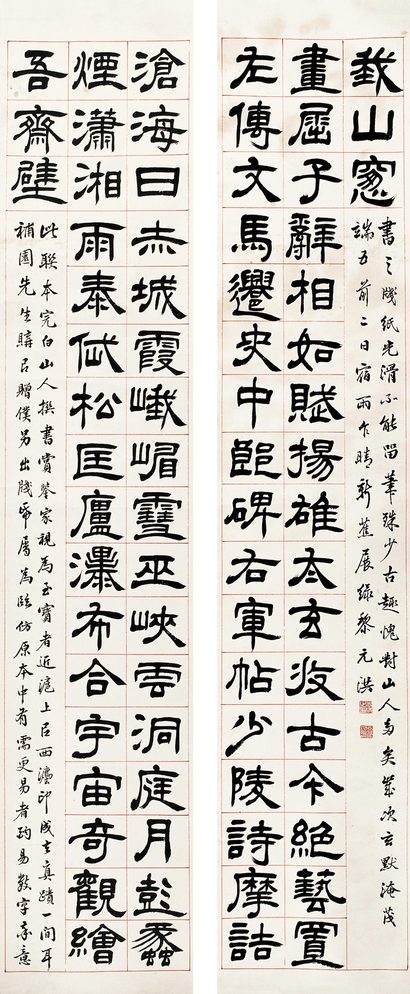 滄海日赤城霞峨嵋雪巫峽雲洞庭月彭蠡
煙瀟湘雨泰岱松匡廬瀑布合宇宙奇觀繪
吾齋壁
此聯本完白山人撰書賞鑒家視為至寶者近滬上以西灋印成去真蹟一間耳
補園先生購以贈僕另出牋帋屬為臨仿原本中有需更易者酌易數字率意
左傳文馬遷史中郎碑右軍帖少陵詩摩詰
畫屈子辭相如賦揚雄太玄收古今絕藝置
我山窗
書之牋紙光滑不能留筆殊少古趣愧對山人多矣歲次玄黓淹茂
端五前二日宿雨乍晴新蕉展綠黎元洪